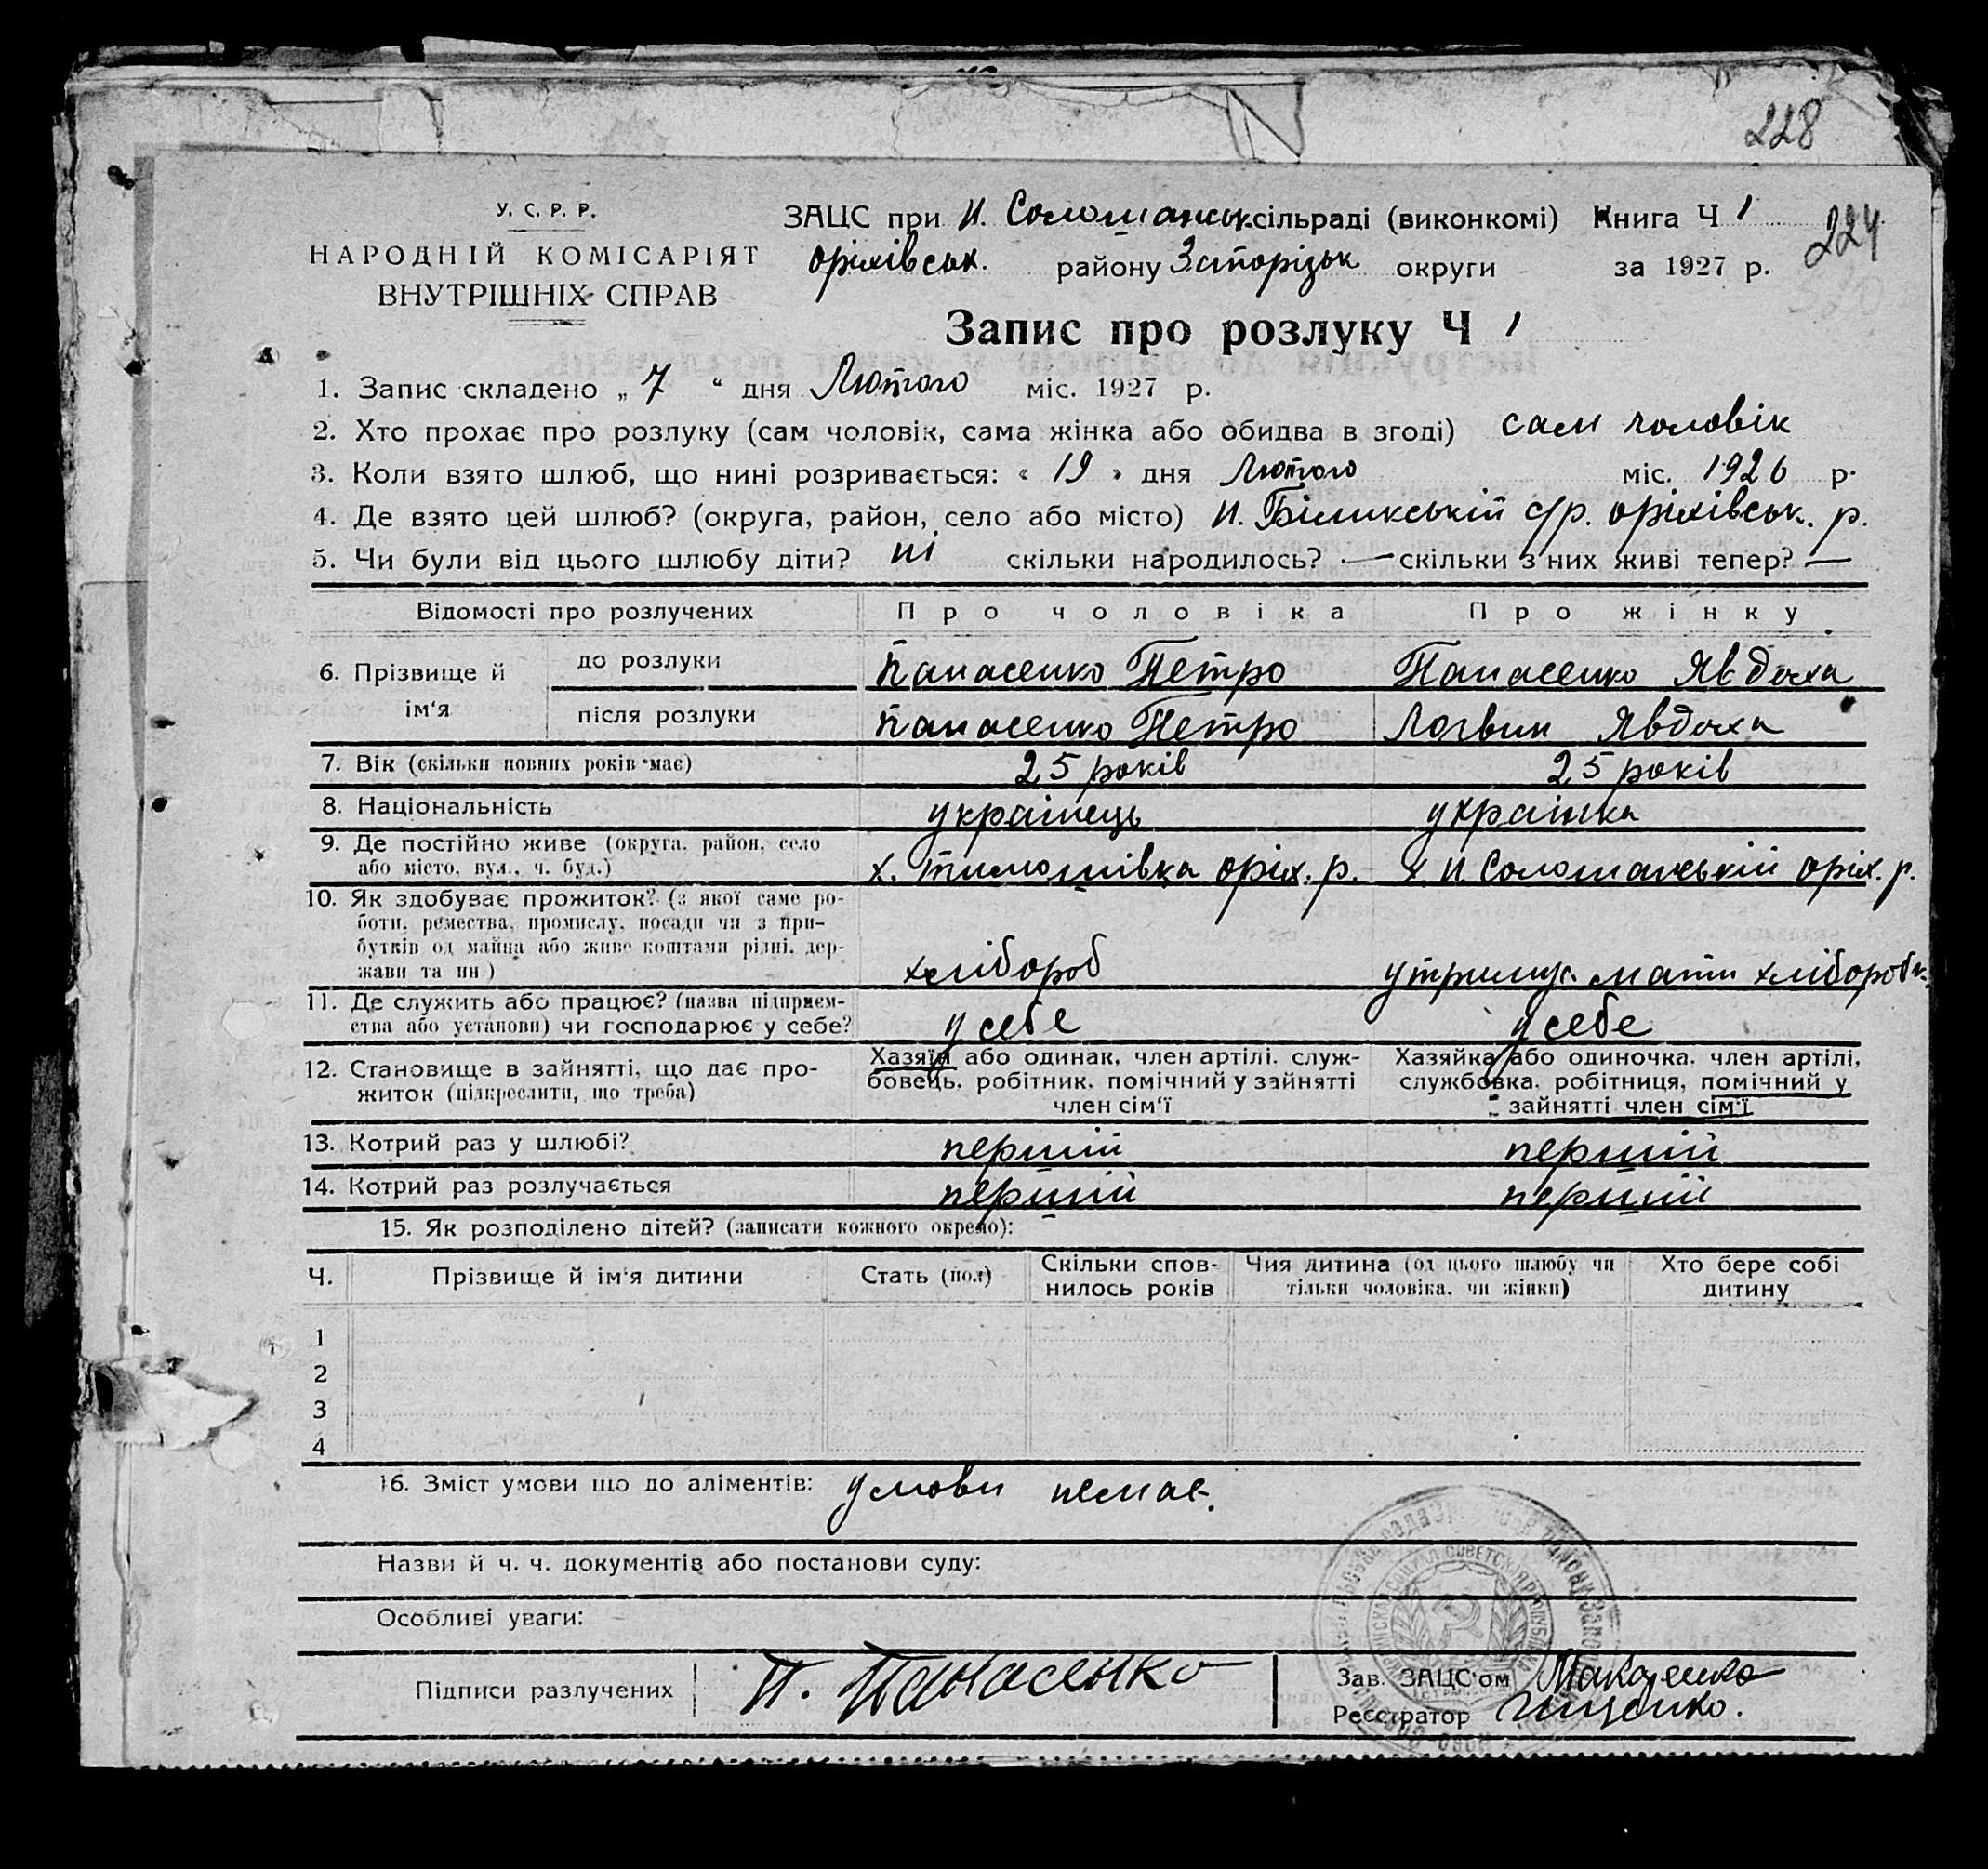 228
У. С. Р. Р.
НАРОДНІЙ КОМІСАРІЯТ
ВНУТРІШНІХ СПРАВ
ЗАЦС при Н. Солошанськ. сільраді (виконкомі) Книга Ч 1
224
оріхівськ. району Запорізьк округи за 1927 р.
Запис про розлуку Ч 1
1. Запис складено „ 7 “ дня Лютого міс. 1927 р.
2. Хто прохає про розлуку (сам чоловік, сама жінка або обидва в згоді) сам чоловік
3. Коли взято шлюб, що нині розривається: « 19 » дня Лютого міс. 1926 р.
4. Де взято цей шлюб? (округа, район, село або місто) Н. Біликській с/р. оріхівськ. р.
5. Чи були від цього шлюбу діти? ні скільки народилось? — скільки з них живі тепер? —
Відомості про розлучених Про чоловіка Про жінку
6. Прізвище й ім'я до розлуки Панасенко Петро Панасенко Явдоха
після розлуки Панасенко Петро Логвин Явдоха
7. Вік (скільки повних років має) 25 років 25 років
8. Національність українець українка
9. Де постійно живе (округа, район, село
або місто, вул., ч. буд.) х. Тимошівка оріх. р. х. Н. Солошанській оріх. р.
10. Як здобуває прожиток? (з якої саме ро-
боти, ремества, промислу, посади чи з при-
бутків од майна або живе коштами рідні, дер-
жави та ин) хлібороб утримує. мати хлібороб
11. Де служить або працює? (назва підприєм-
ства або установи) чи господарює у себе? у себе у себе
12. Становище в зайнятті, що дає про-
житок (підкреслити, що треба)
Хазяїн або одинак, член артілі, служ-
бовець, робітник, помічний у зайнятті
член сім'ї
Хазяйка або одиночка, член артілі,
службовка, робітниця, помічний у
зайнятті член сім'ї
13. Котрий раз у шлюбі? перший перший
14. Котрий раз розлучається перший перший
15. Як розподілено дітей? (записати кожного окремо):
Ч. Прізвище й ім'я дитини Стать (пол) Скільки спов-
нилось років Чия дитина (од цього шлюбу чи
тільки чоловіка, чи жінки) Хто бере собі
дитину
1
2
3
4
16. Зміст умови що до аліментів: умови немає.
Назви й ч. ч. документів або постанови суду:
Особливі уваги:
Підписи разлучених П. Панасенко
Зав. ЗАЦС'ом Макаренко
Реєстратор